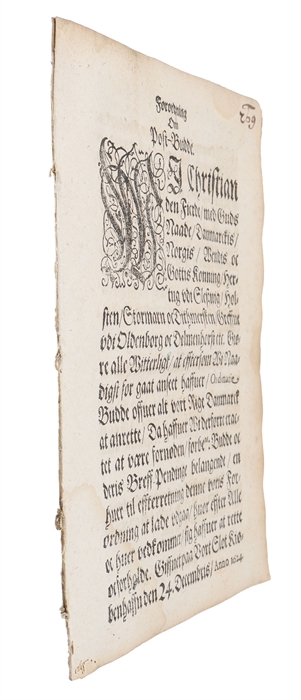 Forordning
Om
Post-Budde.
WJ Christian
den Fierde/ med Guds
Naade/ Danmarckis/
Norgis/ Wendis oc
Gottis Konning/ Her-
tug vdi Sleßwig/ Hol-
sten/ Stormarn oc Dithmersken/ Greffue
vdi Oldenborg oc Delmenhorst etc. Giø-
re alle Witterligt/ at effterson Wi Naa-
digst for gaat anseet haffuer/ Ordinarie
Budde offuer alt vort Rige Danmarck
at anrette/ Da haffuer Wi
tet at være fornøden/ Budde oc
deris Breff Pendinge belangende/ en
huer til effterretning denne vores For-
ordning at lade vdgaa/ huer effter Alle
oc huer vedkommer/ sig haffuer at rette
oc forholde. Giffuet paa Vort Slot Kiø-
benhaffn den 24. Decembris/ Anno 1624